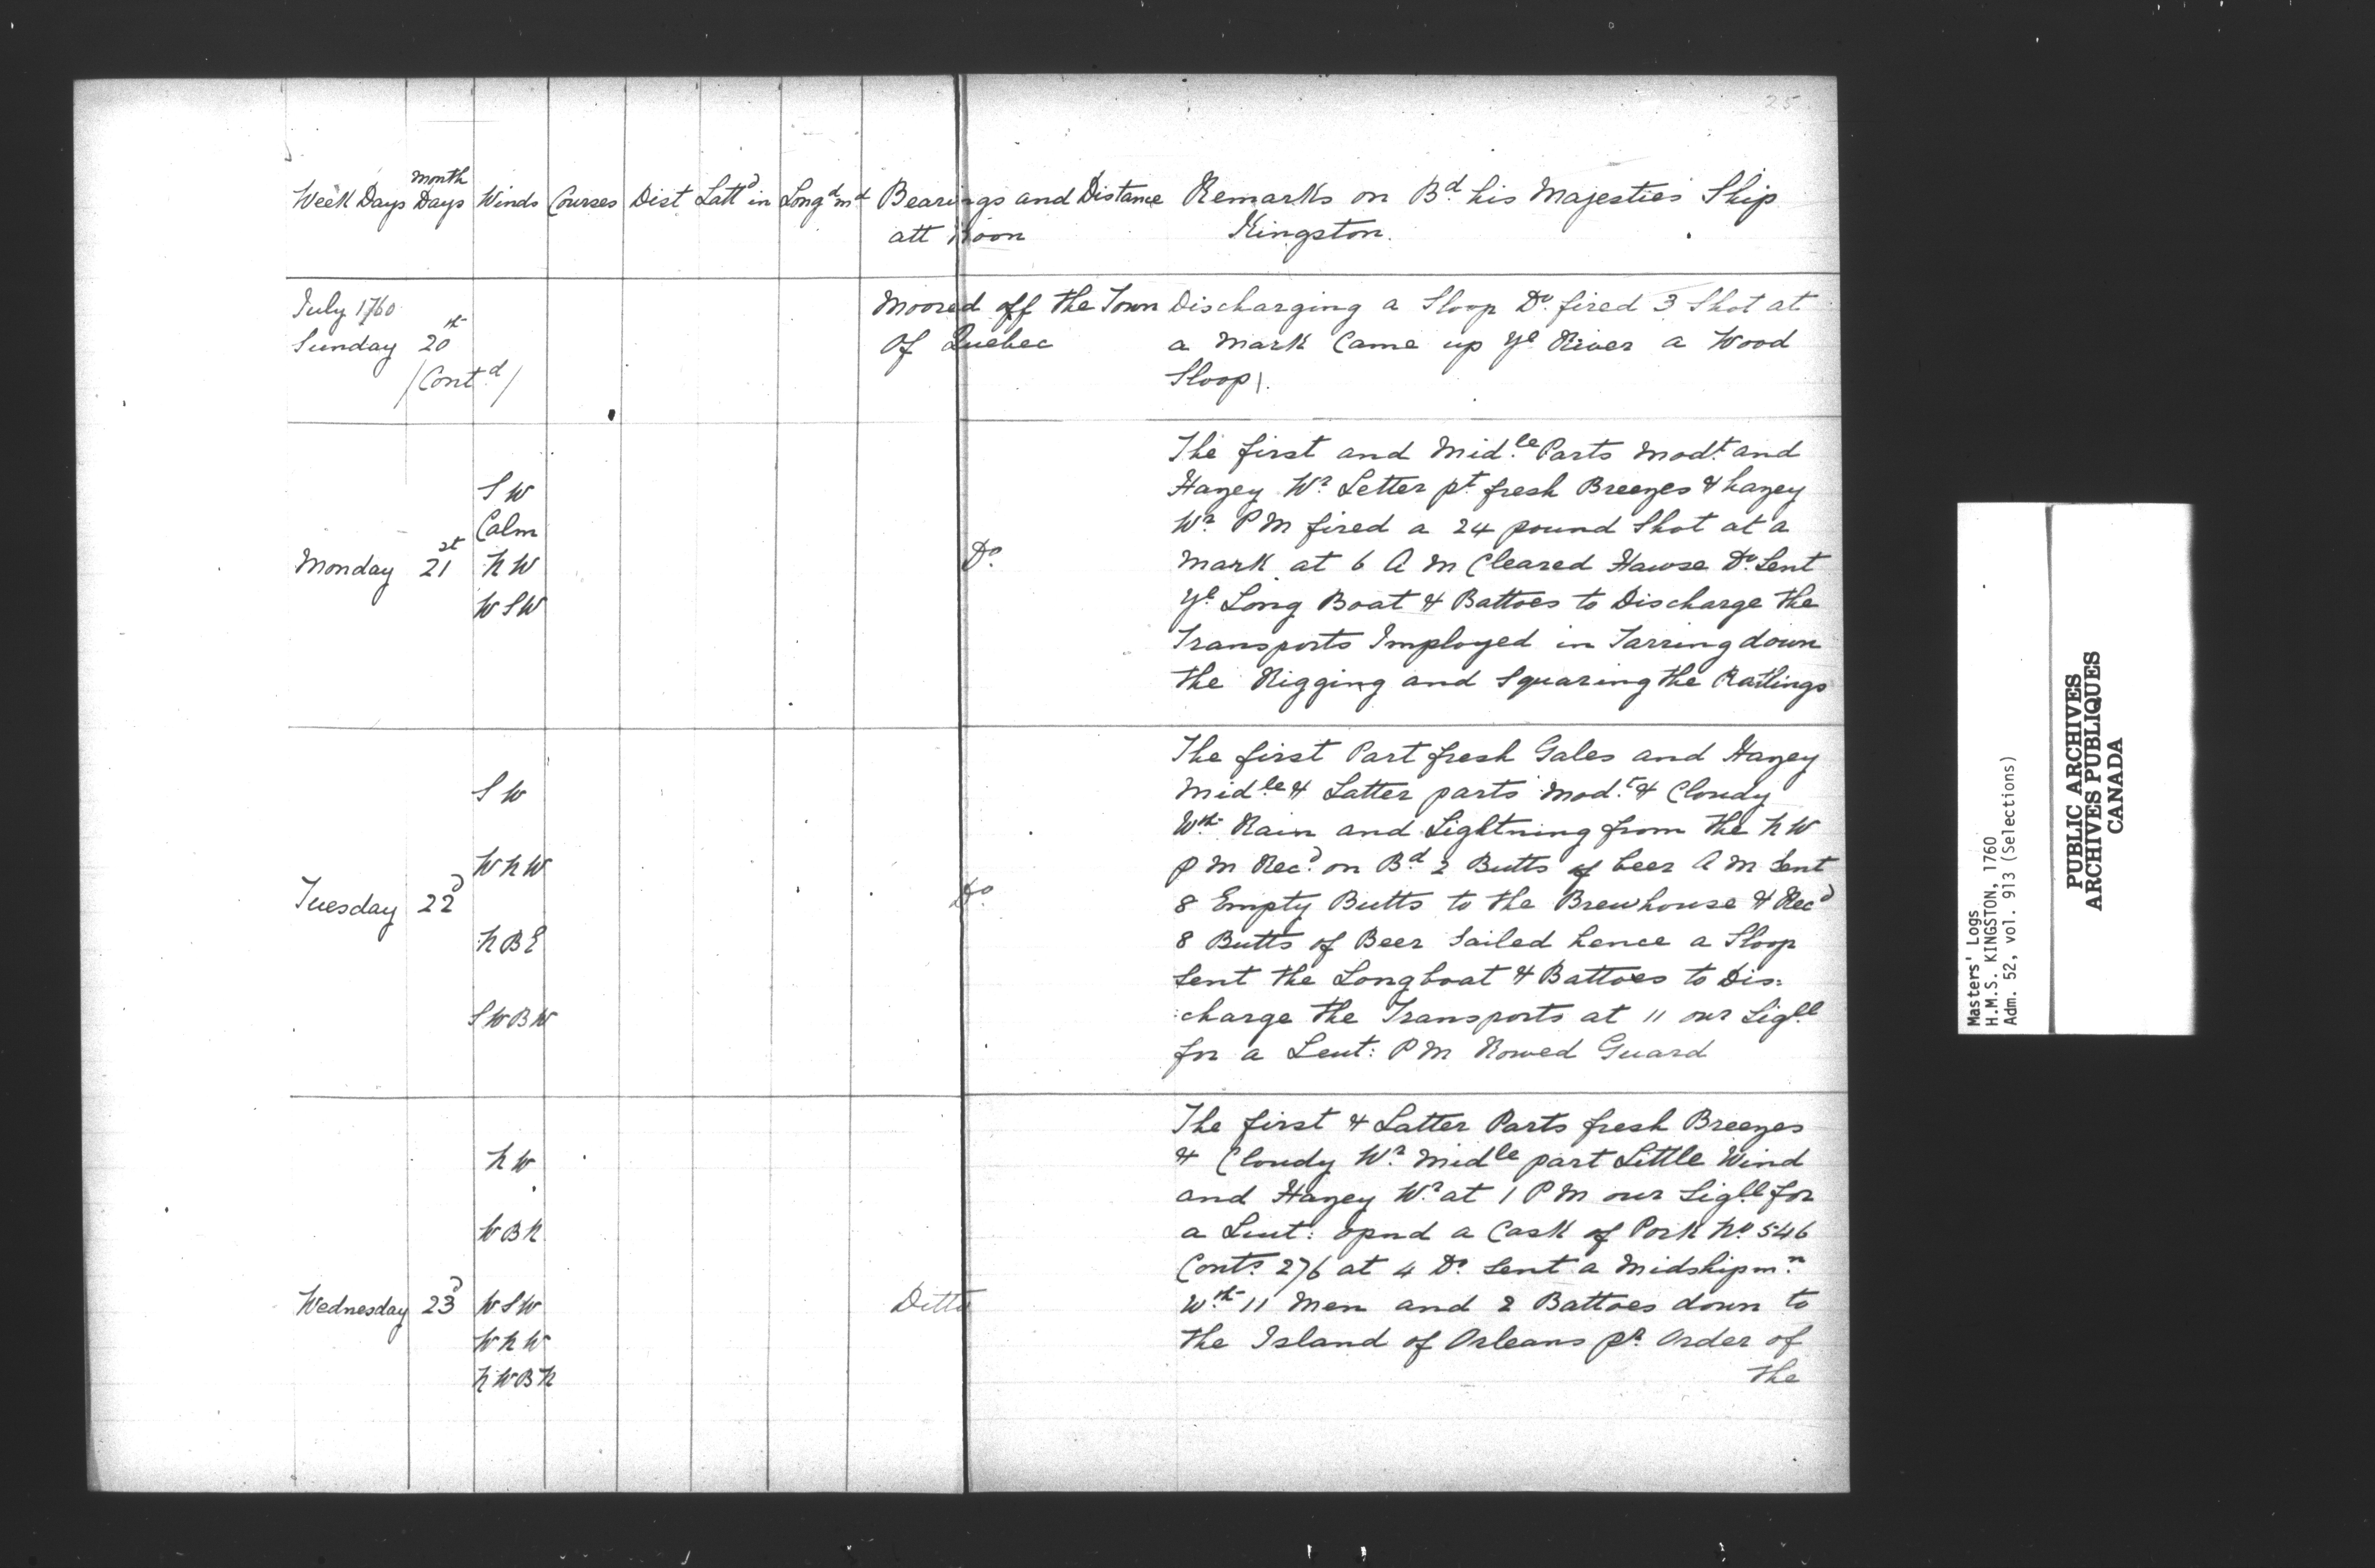 25
Week Days Month Days Winds Courses Dist Lattd in Longd ind Bearings and Distance att Noon
Remarks on Bd his Majesties Ship
Kingston.
July 1760
Sunday 20th
/Contd/
Moored off the Town
Of Quebec
Discharging a Sloop Do fired 3 Shot at
a Mark Came up ye River a Wood
Sloop\.
Monday 21st
S W
Calm
N W
W S W
Do
The first and Midle Parts Modt and
Hazey Wr Letter pt fresh Breezes & hazey
Wr P M fired a 24 pound Shot at a
Mark at 6 A M Cleared Hawse Do Sent
ye Long Boat & Battoes to Discharge the
Transports Imployed in Tarring down
the Rigging and Squaring the Ratlings
Tuesday 22d
S W
W N W
N B E
S W B W
Do
The first Part fresh Gales and Hazey
Midle & Latter parts Modt & Cloudy
Wth Rain and Lightning from the N W
P M Recd on Bd 2 Butts of beer A M Sent
8 Empty Butts to the Brewhouse & Recd
8 Butts of Beer Sailed hence a Sloop
Sent the Longboat & Battoes to Dis:
:charge the Transports at 11 our Sigll
for a Leut: P M Rowed Guard
Wednesday 23d
N W
W B N
W S W
W N W
N W B N
Ditto
The first & Latter Parts fresh Breezes
& Cloudy Wr Midle part Little Wind
and Hazey Wr at 1 P M our Sigll for
a Leut: opnd a Cask of Pork No 546
Conts 276 at 4 Do Sent a Midshipmn
Wth 11 Men and 2 Battoes down to
the Island of Orleans pr Order of
the
Masters' Logs
H.M.S. KINGSTON, 1760
Adm. 52, vol. 913 (Selections)
PUBLIC ARCHIVES
ARCHIVES PUBLIQUES
CANADA